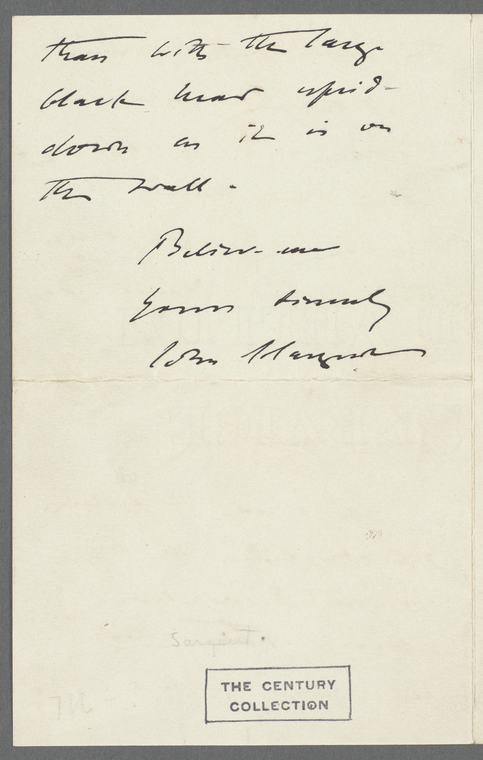 than with the large
black head upside
down as it is on
the wall.
Believe me
yours sincerely
John S Sargent
Sargent.
THE CENTURY
COLLECTION